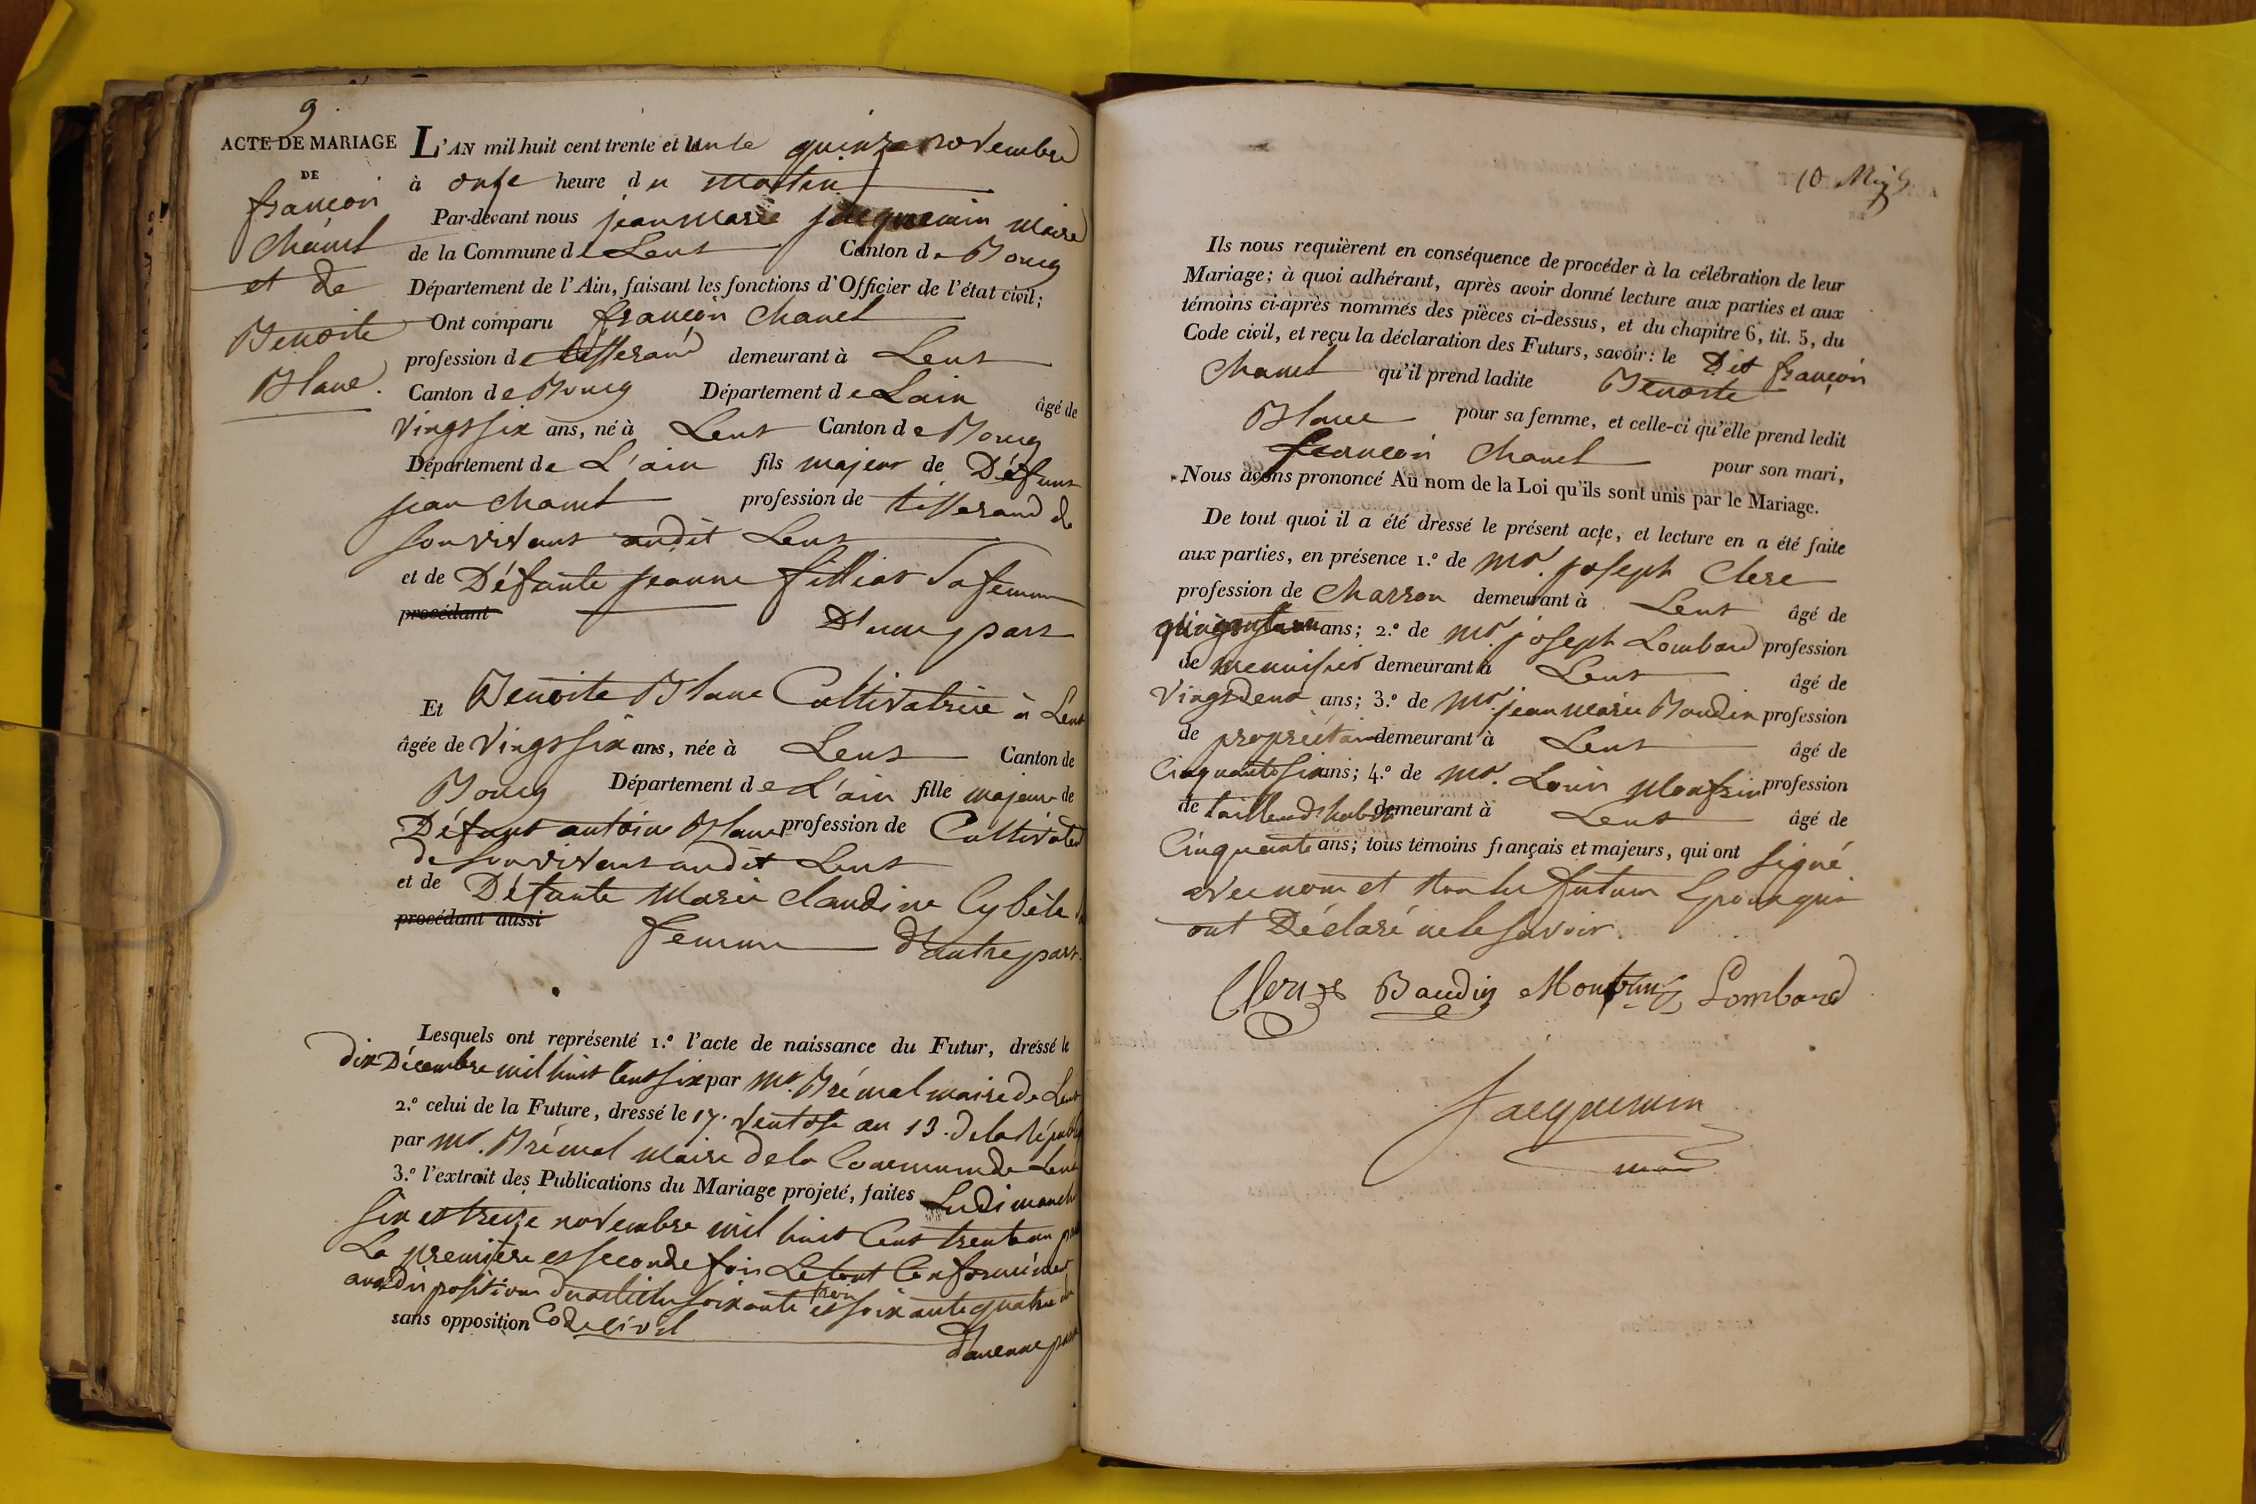 9.
ACTE DE MARIAGE
DE
françois
Chanel
et de
Benoite
Blanc.
L'AN mil huit cent trente et un le quinze novembre
à onze heure du matin
Par-devant nous jean marie jacquemin maire
de la Commune de Lent Canton de Bourg
Département de l'Ain, faisant les fonctions d'Officier de l'état civil;
Ont comparu françois Chanel
profession de tisserand demeurant à Lent
Canton de Bourg Département de Lain âgé de
vingt six ans, né à Lent Canton de Bourg
Département de L'ain fils majeur de Défunt
jean Chanel profession de tisserand de
son vivant audit Lent
et de Défunte jeanne filliat sa femme
procédant D'une part
Et Benoite Blanc Cultivatrice à Lent
âgée de Vingt six ans, née à Lent Canton de
Bourg Département de L'ain fille majeure de
Défunt antoine Blanc profession de Cultivateur
de son vivant audit Lent
et de Défunte Marie Claudine Cybèle sa
procédant aussi femme d'autre part.
Lesquels ont représenté 1.º l'acte de naissance du Futur, dressé le
dix Décembre mil huit Cent six par Mr. Brémal maire de Lent
2.º celui de la Future, dressé le 17. Ventose an 13. de la républ
par Mr. Brémal maire de la Commune de Lent
3.º l'extrait des Publications du Mariage projeté, faites Les dimanche
six et treize novembre mil huit Cent trente un pour
La première et seconde fois Le tout Conformément
aux dispositions des articles soixante trois et soixante quatre du
sans opposition Code civil
d'aucune part
10 Mizs
Ils nous requièrent en conséquence de procéder à la célébration de leur
Mariage; à quoi adhérant, après avoir donné lecture aux parties et aux
témoins ci-après nommés des pièces ci-dessus, et du chapitre 6, tit. 5, du
Code civil, et reçu la déclaration des Futurs, savoir: le Dit françois
Chanel qu'il prend ladite Benoite
Blanc pour sa femme, et celle-ci qu'elle prend ledit
françois Chanel pour son mari,
Nous avons prononcé Au nom de la Loi qu'ils sont unis par le Mariage.
De tout quoi il a été dressé le présent acte, et lecture en a été faite
aux parties, en présence 1.º de Mr. joseph Clerc
profession de Charron demeurant à Lent âgé de
ans; 2.º de Mr. joseph Lombard profession
de menuisier demeurant à Lent âgé de
Vingt Deux ans; 3.º de Mr. jean marie Baudin profession
de propriétaire demeurant à Lent âgé de
Cinquante six ans; 4.º de Mr. Louis Monfrin profession
de tailleur d'habits demeurant à Lent âgé de
Cinquante ans; tous témoins français et majeurs, qui ont signé
avec nous et non les futurs Epoux qui
ont Déclaré ne le savoir.
Clerc Baudin Monfrin Lombard
Jacquemin